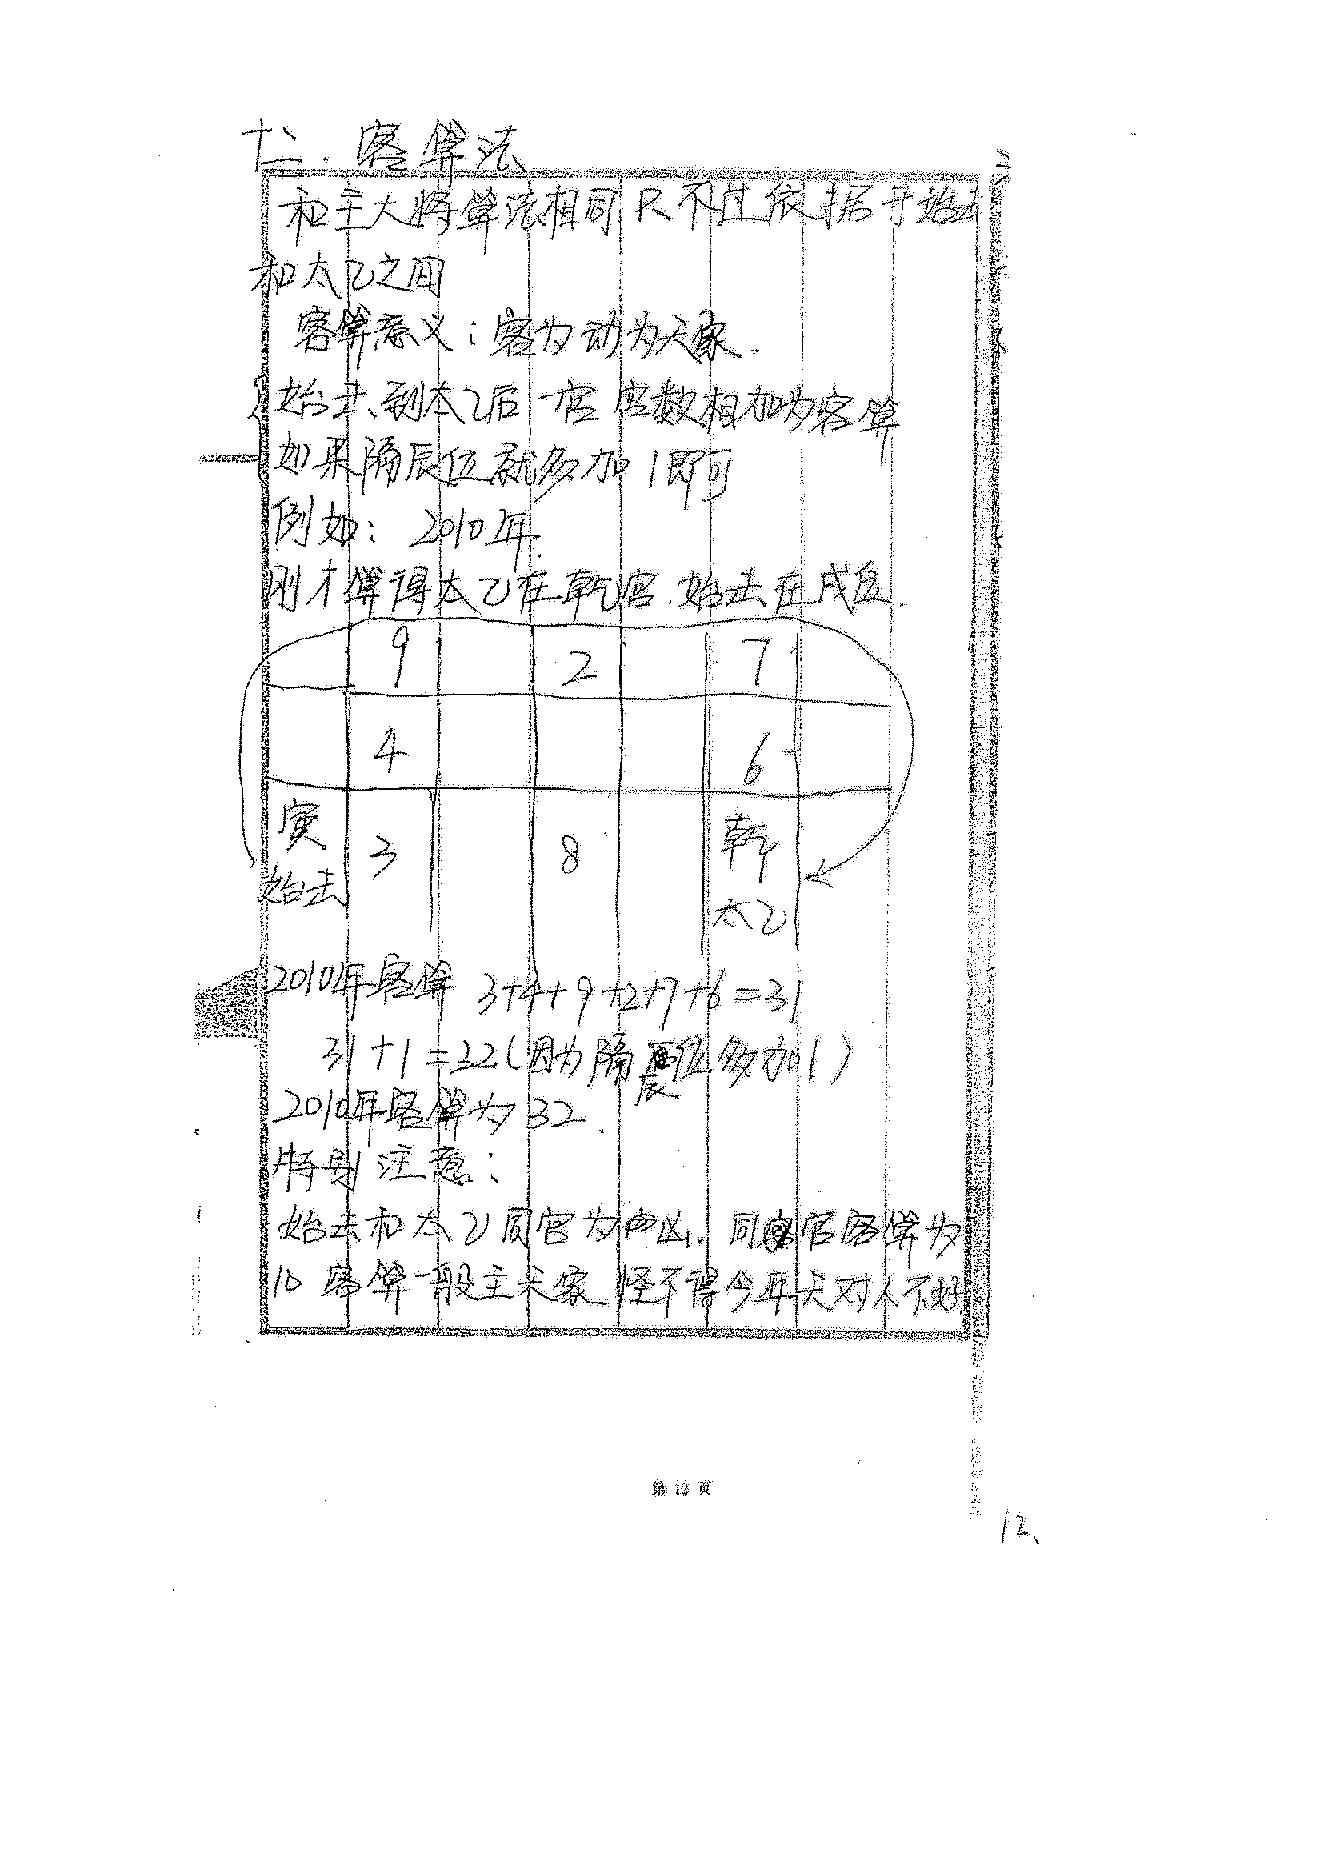 十二.客算法
和主大将算法相同 只不过依据于始击
和太乙之间
客算意义:客为动为天家.
始击、到太乙后一宫 宫数相加为客算
如果隔辰位就多加1即可
例如: 2010年.
刚才算得太乙在乾宫.始击在戌宫.
9 2 7
4 6
寅 3 8 乾
始击 太乙
2010年客算 3+4+9+2+7+6=31
31+1=32(因为隔辰位多加1)
辰
2010年客算为32.
特别注意:
始击和太乙同宫为凶. 同宫客算为
10 客算一般主天家 怪不得今年天对人不好
第12页
12、